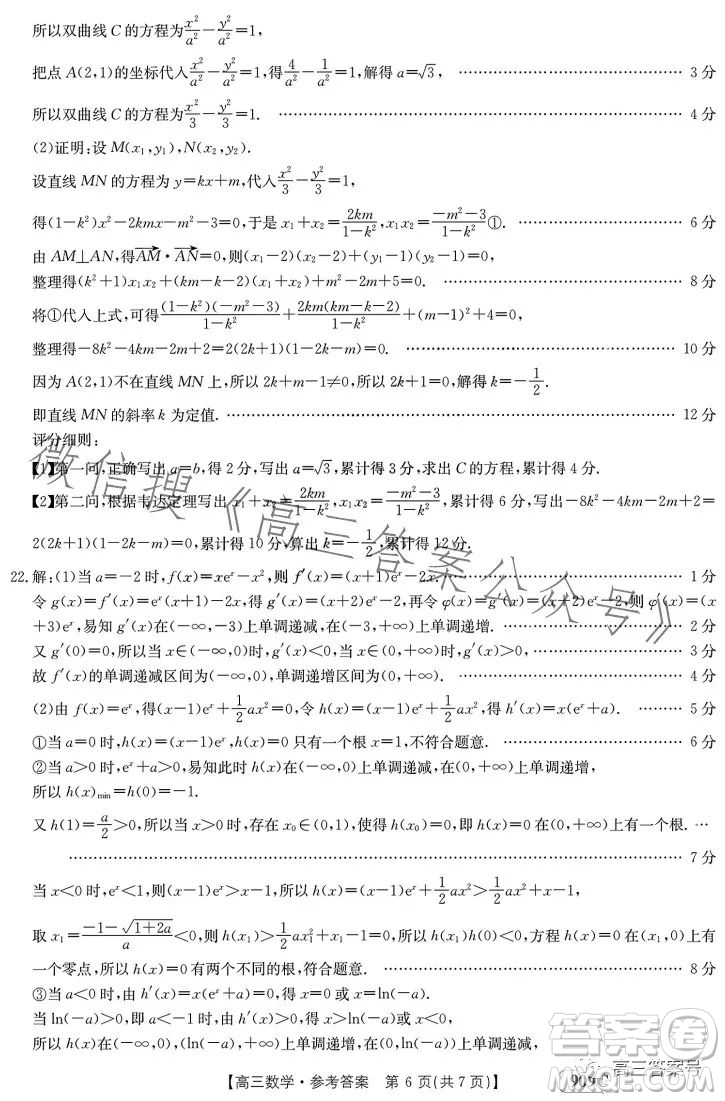 所以双曲线 C 的方程为x²/a²－y²/a²＝1,
把点 A(2,1)的坐标代入x²/a²－y²/a²＝1,得4/a²－1/a²＝1,解得 a＝√3, …… 3 分
所以双曲线 C 的方程为x²/3－y²/3＝1. …… 4 分
(2)证明:设 M(x₁,y₁),N(x₂,y₂).
设直线 MN 的方程为 y＝kx＋m,代入x²/3－y²/3＝1,
得(1－k²)x²－2kmx－m²－3＝0,于是 x₁＋x₂＝2km/(1－k²),x₁x₂＝(－m²－3)/(1－k²)①. …… 6 分
由 AM⊥AN,得AM→·AN→＝0,则(x₁－2)(x₂－2)＋(y₁－1)(y₂－1)＝0,
整理得(k²＋1)x₁x₂＋(km－k－2)(x₁＋x₂)＋m²－2m＋5＝0. …… 8 分
将①代入上式,可得(1－k²)(－m²－3)/(1－k²)＋2km(km－k－2)/(1－k²)＋(m－1)²＋4＝0,
整理得－8k²－4km－2m＋2＝2(2k＋1)(1－2k－m)＝0. …… 10 分
因为 A(2,1)不在直线 MN 上,所以 2k＋m－1≠0,所以 2k＋1＝0,k＝－1/2.
即直线 MN 的斜率 k 为定值. …… 12 分
评分细则:
【1】第一问,正确写出 a＝b,得 2 分,写出 a＝√3,累计得 3 分,求出 C 的方程,累计得 4 分.
【2】第二问,根据韦达定理写出 x₁＋x₂＝2km/(1－k²),x₁x₂＝(－m²－3)/(1－k²),累计得 6 分,写出－8k²－4km－2m＋2＝
2(2k＋1)(1－2k－m)＝0,累计得 10 分,算出 k＝－1/2,累计得 12 分.
22.解:(1)当 a＝－2 时,f(x)＝xeˣ－x²,则 f′(x)＝(x＋1)eˣ－2x. …… 1 分
令 g(x)＝f′(x)＝eˣ(x＋1)－2x,得 g′(x)＝(x＋2)eˣ－2,再令 φ(x)＝g′(x)＝(x＋2)eˣ－2,则 φ′(x)＝(x
＋3)eˣ,易知 g′(x)在(－∞,－3)上单调递减,在(－3,＋∞)上单调递增. …… 2 分
又 g′(0)＝0,所以当 x∈(－∞,0)时,g′(x)<0,当 x∈(0,＋∞)时,g′(x)>0, …… 3 分
故 f′(x)的单调递减区间为(－∞,0),单调递增区间为(0,＋∞). …… 4 分
(2)由 f(x)＝eˣ,得(x－1)eˣ＋1/2ax²＝0,令 h(x)＝(x－1)eˣ＋1/2ax²,得 h′(x)＝x(eˣ＋a). …… 5 分
①当 a＝0 时,h(x)＝(x－1)eˣ,h(x)＝0 只有一个根 x＝1,不符合题意. …… 6 分
②当 a>0 时,eˣ＋a>0,易知 h(x)在(－∞,0)上单调递减,在(0,＋∞)上单调递增,
所以 h(x)min＝h(0)＝－1.
又 h(1)＝a/2>0,所以当 x>0 时,存在 x₀∈(0,1),使得 h(x₀)＝0,即 h(x)＝0 在(0,＋∞)上有一个根. …
…… 7 分
当 x<0 时,eˣ<1,则(x－1)eˣ>x－1,所以 h(x)＝(x－1)eˣ＋1/2ax²>1/2ax²＋x－1,
取 x₁＝(－1－√(1＋2a))/a<0,则 h(x₁)>1/2ax₁²＋x₁－1＝0,所以 h(x₁)h(0)<0,方程 h(x)＝0 在(－∞,0)上有
一个零点,所以 h(x)＝0 有两个不同的根,符合题意. …… 8 分
③当 a<0 时,由 h′(x)＝x(eˣ＋a)＝0,得 x＝0 或 x＝ln(－a).
当 ln(－a)>0,即 a<－1 时,由 h′(x)>0,得 x<0 或 x>ln(－a),由 h′(x)<0,得 0<x<ln(－a),
所以 h(x)在(－∞,0),(ln(－a),＋∞)上单调递增,在(0,ln(－a))上单调递减,
【高三数学·参考答案 第 6 页(共 7 页)】
909C
微信搜《高三答案公众号》
高三答案号
答案圈